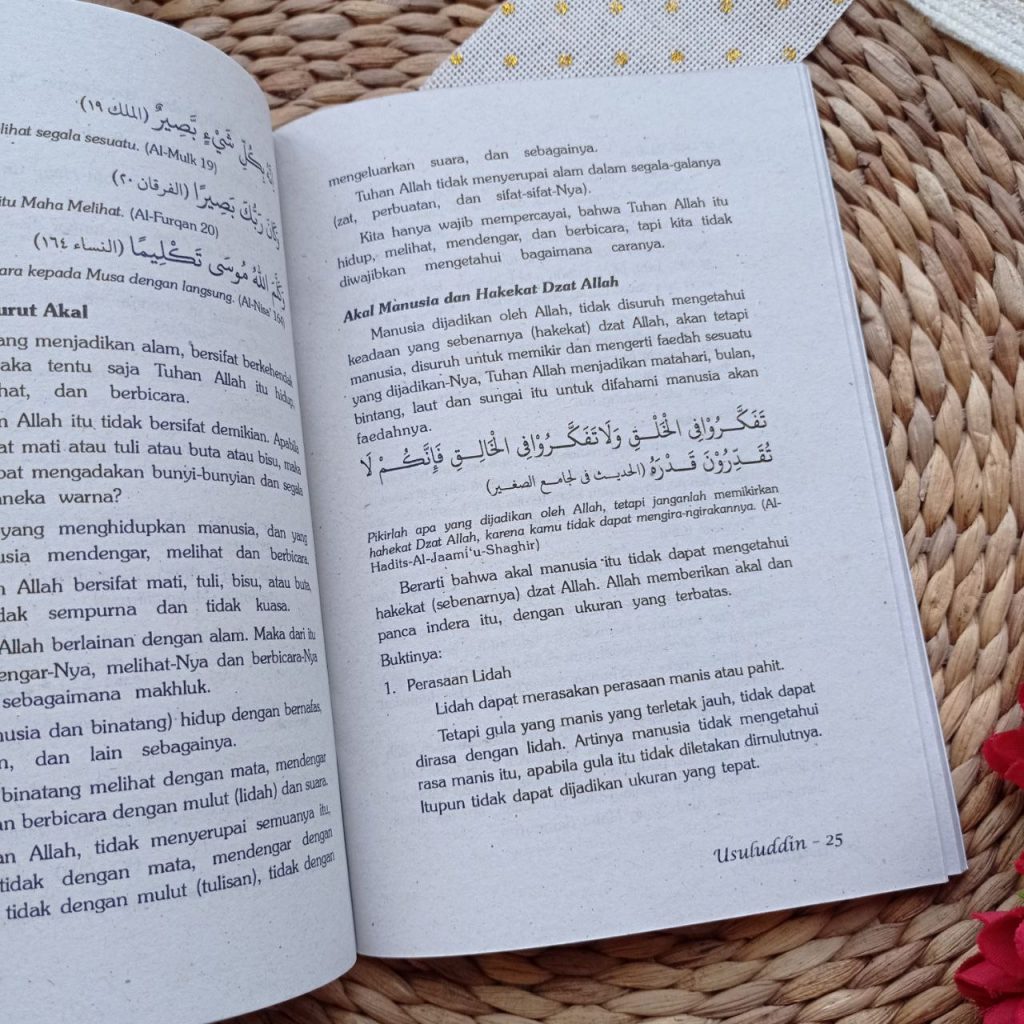 بِكُلِّ شَيْءٍ بَصِيرٌ (الملك ١٩)
lihat segala sesuatu. (Al-Mulk 19)
وَكَانَ رَبُّكَ بَصِيرًا (الفرقان ٢٠)
itu Maha Melihat. (Al-Furqan 20)
وَكَلَّمَ اللهُ مُوسَى تَكْلِيمًا (النساء ١٦٤)
ara kepada Musa dengan langsung. (Al-Nisa' 164)
urut Akal
ang menjadikan alam, bersifat berkehendak
aka tentu saja Tuhan Allah itu hidup,
hat, dan berbicara.
n Allah itu tidak bersifat demikian. Apabila
at mati atau tuli atau buta atau bisu, maka
pat mengadakan bunyi-bunyian dan segala
aneka warna?
yang menghidupkan manusia, dan yang
usia mendengar, melihat dan berbicara.
n Allah bersifat mati, tuli, bisu, atau buta,
dak sempurna dan tidak kuasa.
Allah berlainan dengan alam. Maka dari itu
engar-Nya, melihat-Nya dan berbicara-Nya
sebagaimana makhluk.
usia dan binatang) hidup dengan bernafas,
n, dan lain sebagainya.
binatang melihat dengan mata, mendengar
an berbicara dengan mulut (lidah) dan suara.
an Allah, tidak menyerupai semuanya itu,
tidak dengan mata, mendengar dengan
tidak dengan mulut (tulisan), tidak dengan
mengeluarkan suara, dan sebagainya.
Tuhan Allah tidak menyerupai alam dalam segala-galanya
(zat, perbuatan, dan sifat-sifat-Nya).
Kita hanya wajib mempercayai, bahwa Tuhan Allah itu
hidup, melihat, mendengar, dan berbicara, tapi kita tidak
diwajibkan mengetahui bagaimana caranya.
Akal Manusia dan Hakekat Dzat Allah
Manusia dijadikan oleh Allah, tidak disuruh mengetahui
keadaan yang sebenarnya (hakekat) dzat Allah, akan tetapi
manusia, disuruh untuk memikir dan mengerti faedah sesuatu
yang dijadikan-Nya, Tuhan Allah menjadikan matahari, bulan,
bintang, laut dan sungai itu untuk difahami manusia akan
faedahnya.
تَفَكَّرُوْا فِي الْخَلْقِ وَلَا تَفَكَّرُوْا فِي الْخَالِقِ فَإِنَّكُمْ لَا
تُقَدِّرُوْنَ قَدْرَهُ (الحديث فى لجامع الصغير)
Pikirlah apa yang dijadikan oleh Allah, tetapi janganlah memikirkan
hahekat Dzat Allah, karena kamu tidak dapat mengira-ngirakannya. (Al-
Hadits-Al-Jaami'u-Shaghir)
Berarti bahwa akal manusia itu tidak dapat mengetahui
hakekat (sebenarnya) dzat Allah. Allah memberikan akal dan
panca indera itu, dengan ukuran yang terbatas.
Buktinya:
1. Perasaan Lidah
Lidah dapat merasakan perasaan manis atau pahit.
Tetapi gula yang manis yang terletak jauh, tidak dapat
dirasa dengan lidah. Artinya manusia tidak mengetahui
rasa manis itu, apabila gula itu tidak diletakan dimulutnya.
Itupun tidak dapat dijadikan ukuran yang tepat.
Usuluddin - 25